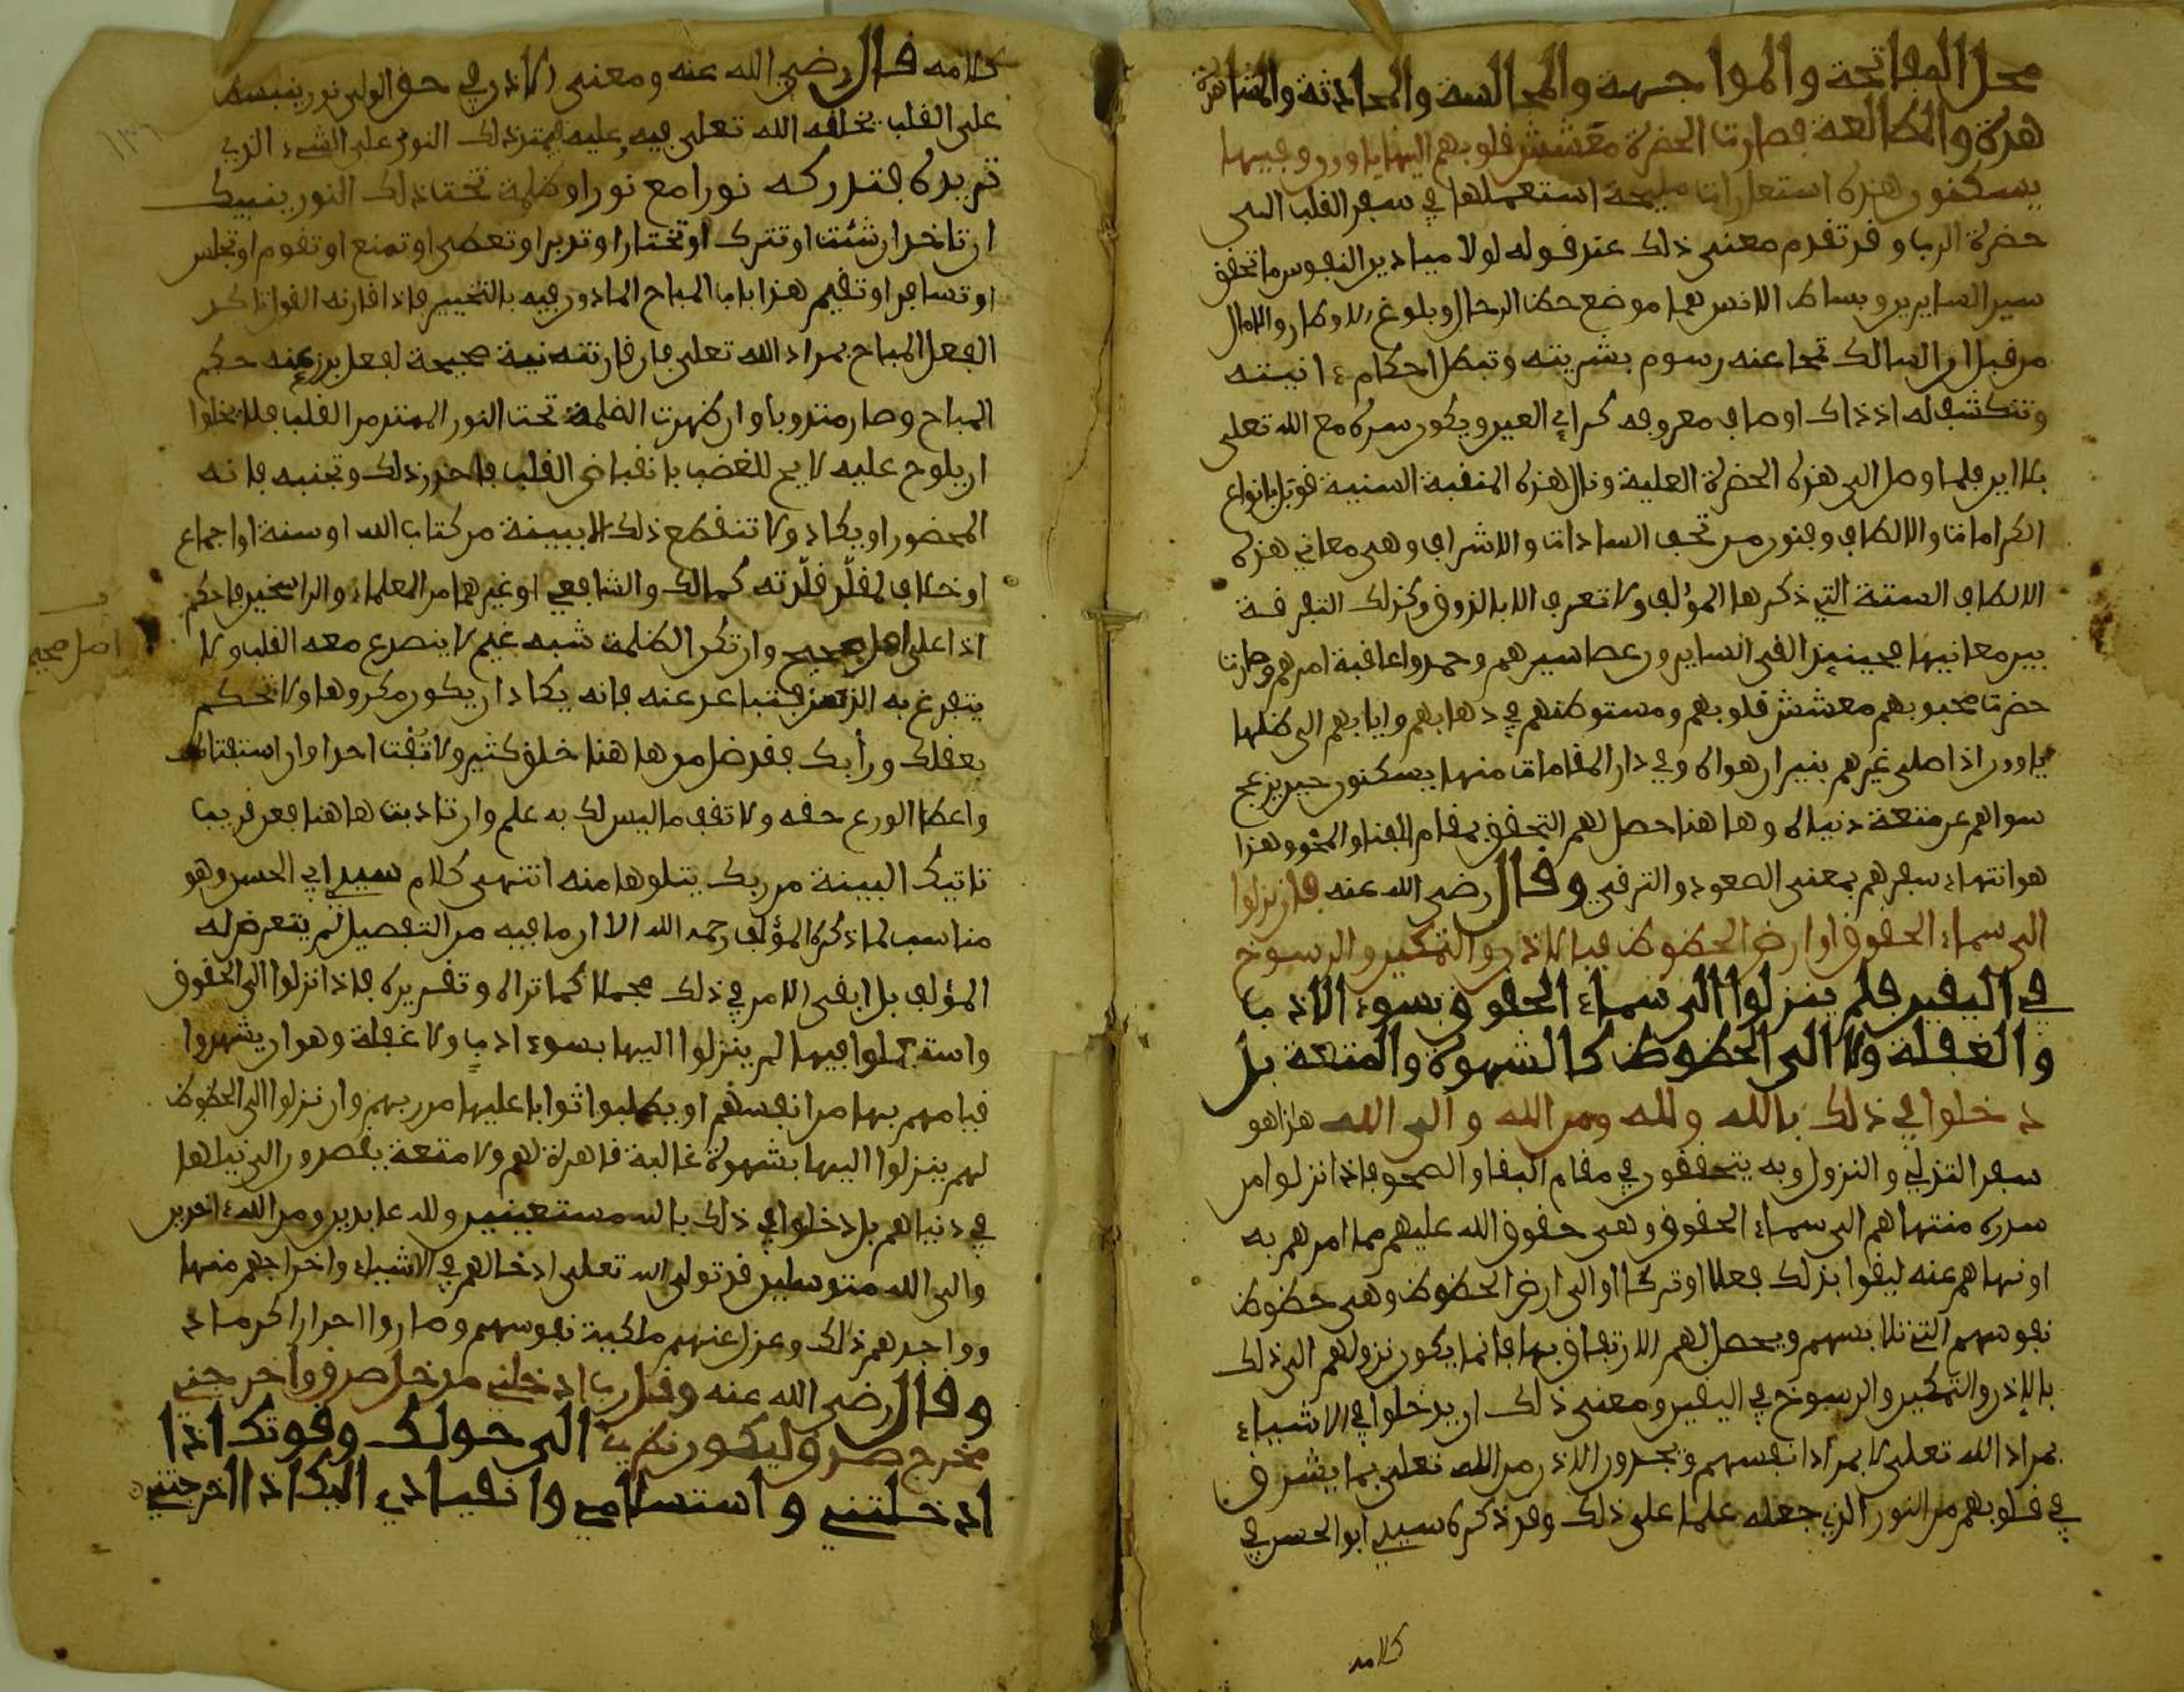 محل المفاتحة والمواجهة والمجالسة والمحادثة والمشا
هدة والمطالعة فصارت الحضرة معشش قلوبهم اليها ياوون وفيها
يسكنون هذه استعارات مليحة استعملها في سفر القلب الى
حضرة الرب وقد تقدم معنى ذلك عند قوله لولا ميادين النفوس ما تحقق
سير السايرين وبساط الانس بها موضع حط الرحال وبلوغ الاوطار والامال
من قبل ان السالك تمحا عنه رسوم بشريته وتبطل احكام ءانيته
وتنكشف له اذذاك اوصاف معروفه كراي العين ويكون سره مع الله تعلى
بلا اين فلما وصل الى هذه الحضرة العلية ونال هذه المنقبة السنية قوبل بانواع
الكرامات والالطاف وفنون من تحف السادات والاشراف وهى معاني هذه
الالطاف الستة التي ذكرها المؤلف ولا تعرف الا بالذوق وكذلك التفرقة
بين معانيها فحينيذ القى السايرون عصا سيرهم وحمدوا عاقبة امرهم وصارت
حضرت محبوبهم معشش قلوبهم ومستوطنهم في ذهابهم وايابهم الى ظلها
ياوون اذا صلى غيرهم بنيران هواه وفي دار المقامات منها يسكنون حين يزعج
سواهم عن متعة دنياه وها هنا حصل لهم التحقق بمقام الفنا والمحو وهذا
هو انتهاء سفرهم بمعنى الصعود والترقي وقال رضى الله عنه فان نزلوا
الى سماء الحقوق او ارض الحظوظ فبالاذن والتمكين والرسوخ
في اليقين فلم ينزلوا الى سماء الحقوق بسوء الادب
والغفلة ولا الى الحظوظ كالشهوة والمتعة بل
دخلوا في ذلك بالله ولله ومن الله والى الله هذا هو
سفر التدلي والنزول وبه يتحققون في مقام البقا والصحو فاذا نزلوا من
سدرة منتهاهم الى سماء الحقوق وهى حقوق الله عليهم مما امرهم به
او نهاهم عنه ليفوا بذلك فعلا او تركا او الى ارض الحظوظ وهى حظوظ
نفوسهم التي تلابسهم ويحصل لهم الارتفاق بها فانما يكون نزولهم الى ذلك
بالاذن والتمكين والرسوخ في اليقين ومعنى ذلك ان يدخلوا في الاشياء
بمراد الله تعلى لا بمراد انفسهم ويجدون الاذن من الله تعلى بما يشرق
في قلوبهم من النور الذي جعله علما على ذلك وقد ذكره سيدي ابو الحسن في
كلامه
كلامه قال رضي الله عنه ومعنى الاذن في حق الولي نور ينبسط
على القلب يخلقه الله تعلى فيه وعليه فيمتد ذلك النور على الشيء الذي
تريده فتدركه نورا مع نور او ظلمة تحت ذلك النور ينبيك
ان تاخذ ان شئت او تترك او تختار او تدبر او تعطى او تمنع او تقوم او تجلس
او تسافر او تقيم هذا باب المباح الماذون فيه بالتخيير فاذا قارنه القول تاكد
الفعل المباح بمراد الله تعلى فان قارنته نية صحيحة لفعل برز عنه حكم
المباح وصار مندوبا وان ظهرت الظلمة تحت النور الممتد من القلب فلا يخلوا
ان يلوح عليه لايح للغضب بانقباض القلب فاحذر ذلك وتجنبه فانه
المحضور او يكاد ولا تنقطع ذلك الا ببينة من كتاب الله او سنة او اجماع
او خلاف لمقلد قلدته كمالك والشافعي او غيرهما من العلماء والراسخين فاحكم
اذا على اصل صحيح وان تكن الظلمة شبه غيم لا ينصدع معه القلب ولا
اصل صحيح
يتفرغ به الذهن فتباعد عنه فانه يكاد ان يكون مكروها ولا تحكم
بعقلك ورأيك فقد ضل من هاهنا خلق كثير ولا تفت احدا وان استفتاك
واعط الورع حقه ولا تقف ما ليس لك به علم وان تادبت هاهنا فعن قريب
تاتيك البينة من ربك يتلوها منه انتهى كلام سيدي ابي الحسن وهو
مناسب لما ذكره المؤلف رحمه الله الا ان ما فيه من التفصيل لم يتعرض له
المؤلف بل ابقى الامر في ذلك مجملا كما تراه وتقريره فاذا نزلوا الى الحقوق
واستعملوا فيها لم ينزلوا اليها بسوء ادب ولا غفلة وهو ان يشهدوا
قيامهم بها من انفسهم او يطلبوا ثوابا عليها من ربهم وان نزلوا الى الحظوظ
لم ينزلوا اليها بشهوة غالبة قاهرة لهم ولا متعة يقصدون الى نيلها
في دنياهم بل دخلوا في ذلك بالله مستعينين ولله عابدين ومن الله ءاخذين
والى الله متوسلين قد تولى الله تعلى ادخالهم في الاشياء واخراجهم منها
وواجدهم ذلك وعزل عنهم ملكية نفوسهم وصاروا احرارا كرماء
وقال رضى الله عنه وقل رب ادخلني مدخل صدق واخرجني
مخرج صدق وليكون نظري الى حولك وقوتك اذا
ادخلتني واستسلامي وانقيادي اليك اذا اخرجتني